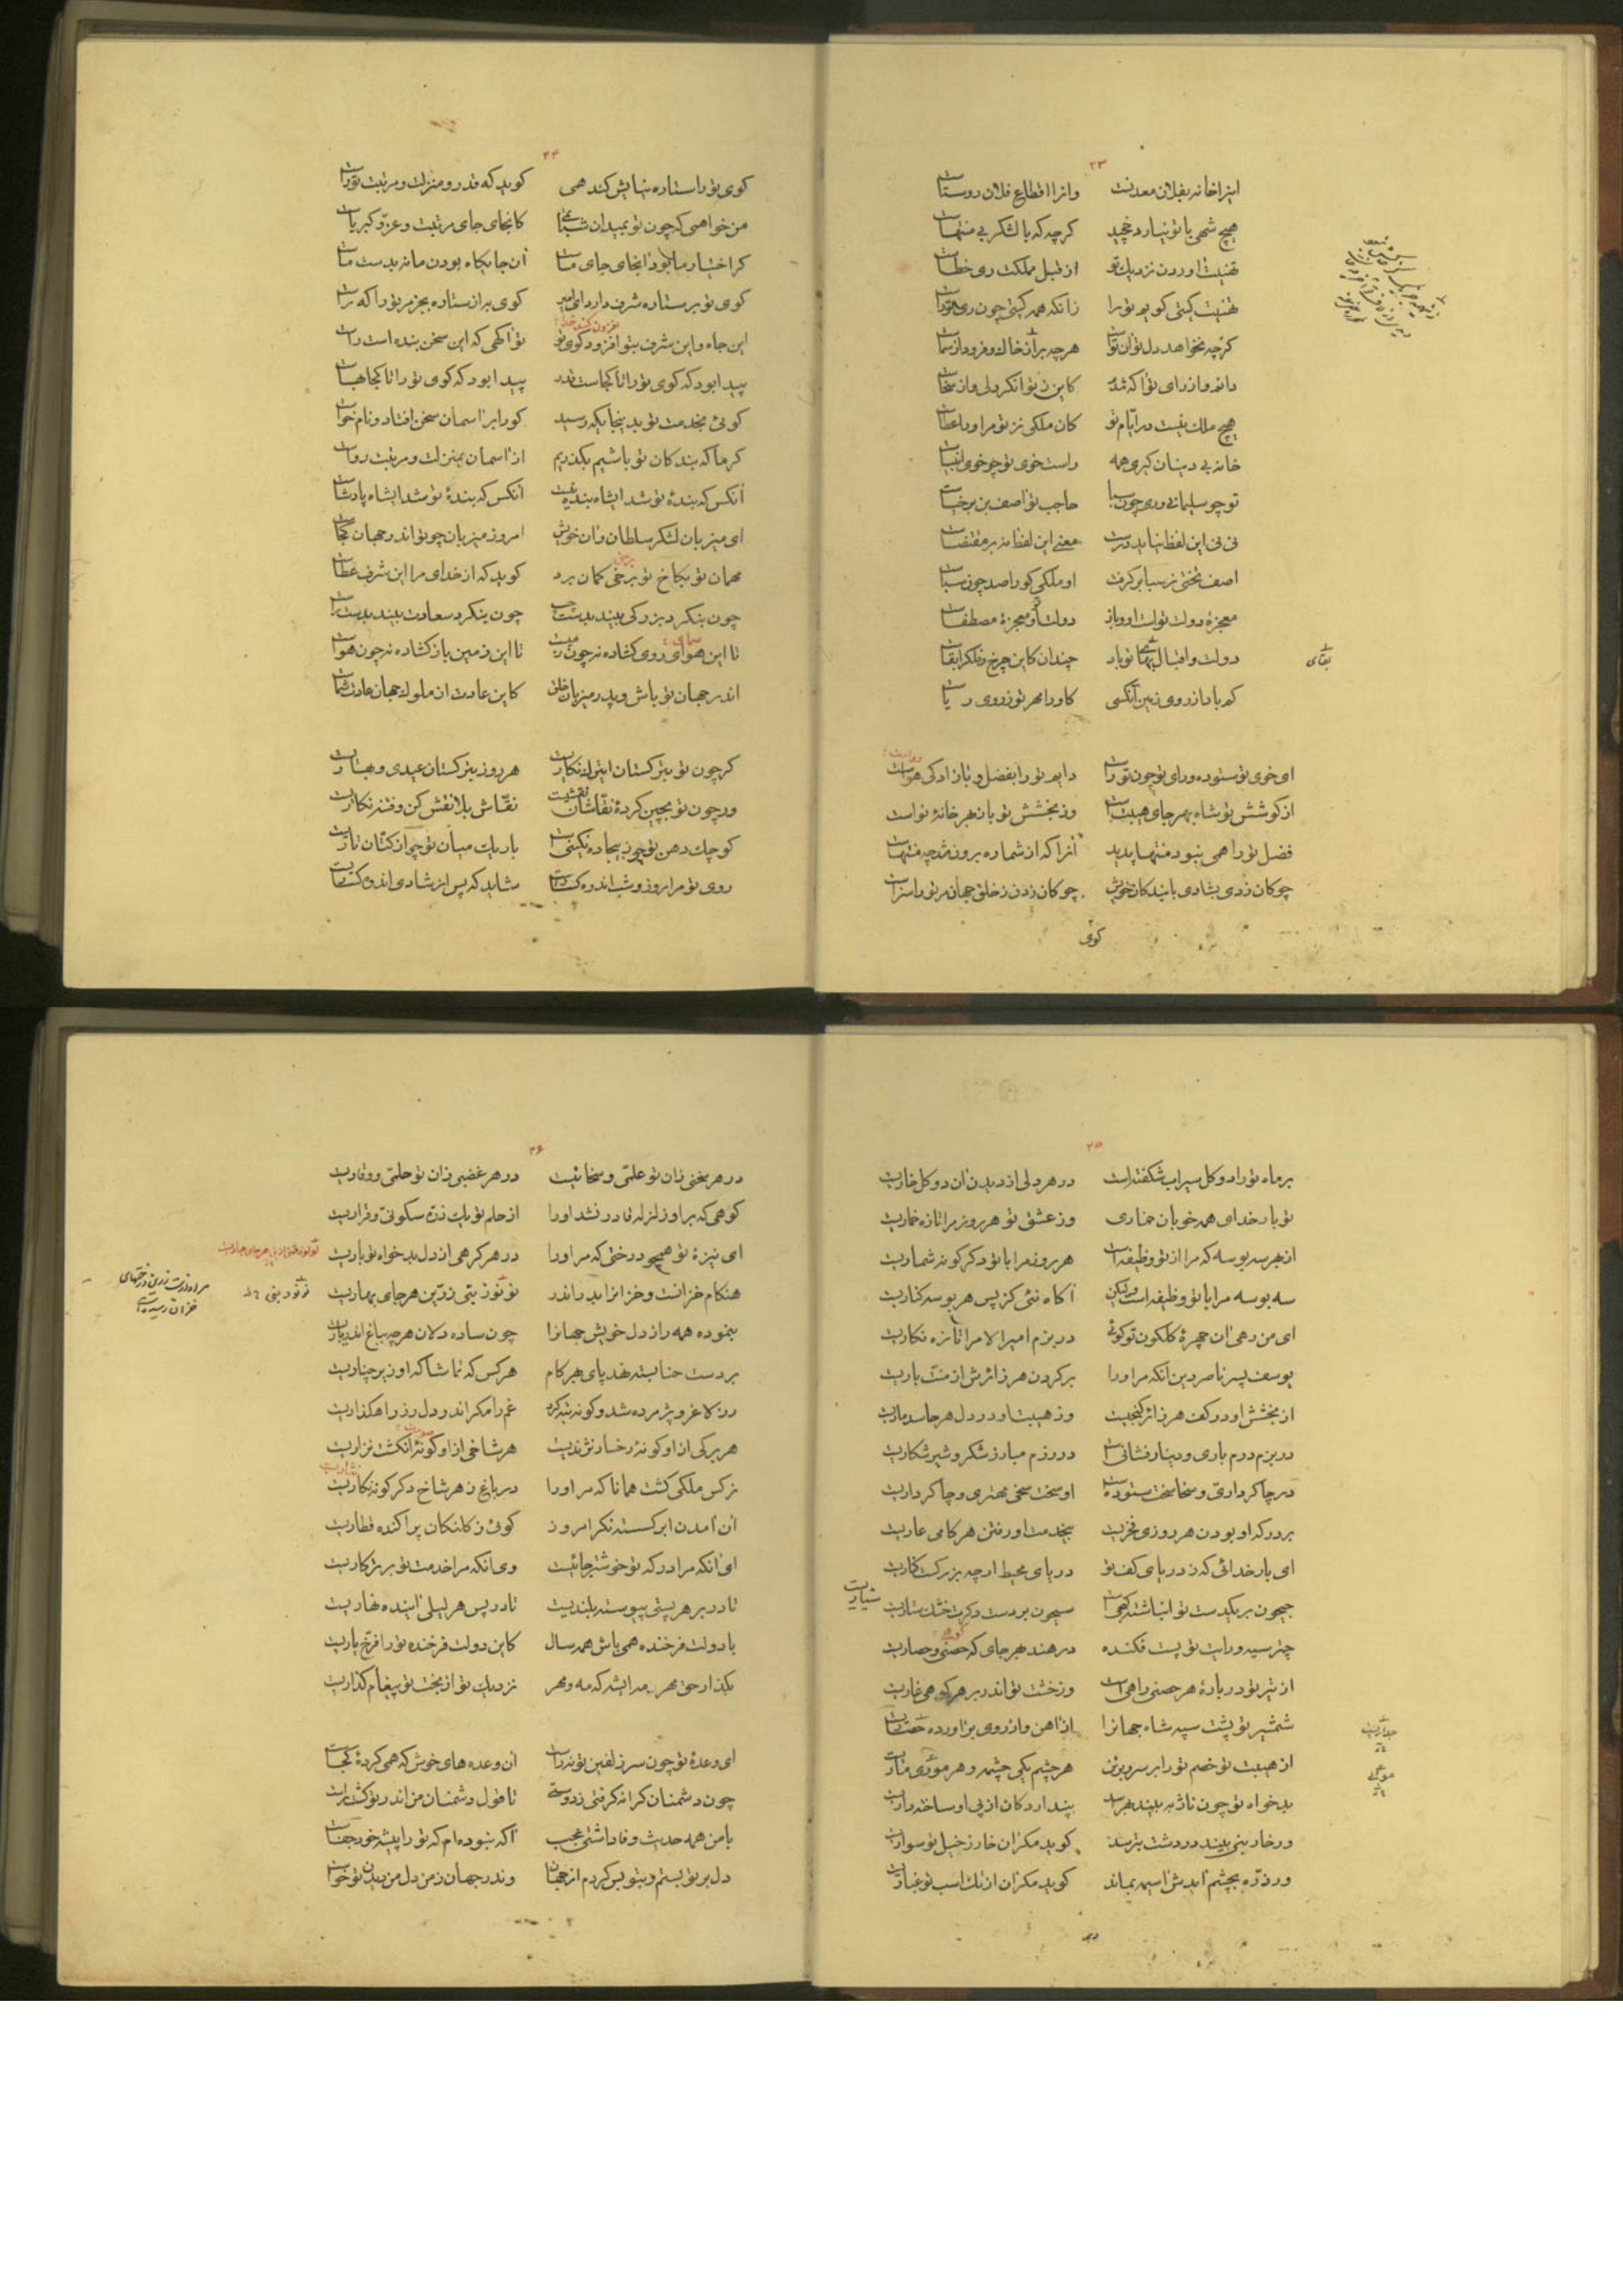 ۲۳
اینرا خانه بفلان معدنست وانرا اقطاع فلان روستاست
هیچ شهی با تو نیارد چخید کرچه که با لشکر بی منتهاست
تهنیت اوردن نزدیک تو از قبل مملکت ری خطاست
تهنیت کیتی کویم تو را زانکه همه کیتی چون ری تو راست
کرچه نخواهد دل تو ان تست هرچه بر از خاک و فرود از سماست
کاین ز توانکر دلی و از سخاست
هیچ ملک نیست در ایّام تو کان ملکی نز تو مر او را عطاست
خانه بی دینان کیری همه راست خوی تو چو خوی انبیاست
تو چو سلیمانی و ری چون سبا حاجب تو اصف بن برخیاست
نی نی این لفظ نیاید درست معنی این لفظ نه بر مقتضاست
اصف تختی ز سبا بر کرفت او ملکی کو را صد چون سباست
معجزهٔ دولت تو است او و باز دولت او معجزهٔ مصطفاست
دولت و اقبال و بقا تو باد چندان کاین چرخ و فلک را بقاست
بقای
کم باد از روی زمین آنکسی کاو را مهر تو ز روی ریاست
ای خوی تو ستوده و رای تو چون تو راست دایم تو را بفضل و بازادکی هواست
از کوشش تو شاه بهر جای هیبت است وز بخشش تو باز بهر خانهٔ نواست
فضل تو را همی نبود منتها پدید آنرا که از شماره برون شد چه منتهاست
چوکان زدی بشادی با بندکان خویش چوکان زدن ز خلق جهان مر تو را سزاست
کوی
۲۴
کوی تو را ستاره نیایش کند همی کوید که قدر و منزلت و مرتبت تو راست
من خواهمی که چون تو بمیدان شتابیی کانجای جای مرتبت و عزّ و کبریاست
کر اختیار ما بود انجای جای ماست آن جایکاه بودن ما نه بدست ماست
کوی تو بر ستاره شرف دارد ای امیر کوی براز ستاره بجز مر تو را که راست
این جاه و این شرف بتو افزود کوی تو تو آکهی که این سخن بنده است راست
پیدا بود که کوی تو را تا کجاست قدر پیدا بود که کوی تو را تا کجا بهاست
کوئی بخدمت تو بدینجایکه رسید کو را بر اسمان سخن افتاد و نام خواست
کر ما که بندکان تو باشیم بکذریم از اسمان بمنزلت و مرتبت رواست
آنکس که بندهٔ تو شد ای شاه بنده نیست آنکس که بندهٔ تو شد ای شاه پادشاست
ای میزبان لشکر سلطان و ان خویش امروز میزبان چو تو اندر جهان کجاست
مهمان تو بکاخ تو بر خی کمان برد کوید که از خدای مرا این شرف عطاست
چون بنکرد بزرکی بیند بدست چپ چون بنکرد سعادت بیند بدست راست
تا این هوای روی کشاده نه چون زمیست تا این زمین باز کشاده نه چون هواست
اندر جهان تو باش و پدر میزبان خلق کاین عادت از ملوک جهان عادت شماست
کر چون تو بترکستان ای ترک نکاریست هر روز بترکستان عیدی و بهاریست
ور چون تو بچین کردهٔ نقّاشان نقشیست نقّاش بلا نقش کن و فتنه نکاریست
کوچک دهن تو چو ز بیجاده نکینیست باریک میان تو چو از کتّان تاریست
روی تو مرا روز و شب اندر کساریست شاید که پس از شادی اندوه کساریست
۲۵
بر ماه تو را دو کل سیراب شکفته است در هر دلی از دیدن ان دو کل خاریست
تو بار خدای همه خوبان خماری وز عشق تو هر روز مرا تازه خماریست
از بهر سه بوسه که مرا از تو وظیفه است هر روز مرا با تو دکر کونه شماریست
سه بوسه مرا با تو وظیفه است ولیکن آکاه نئی کز پس هر بوسه کناریست
ای من رهی ان چهرهٔ کلکون تو کوئی در بزم امیرالامرا تازه نکاریست
یوسف پسر ناصر دین آنکه مر او را بر کردن هر زائرش از منّت باریست
از بخشش او در کف هر زائر کنجیست وز هیبت او در دل هر حاسد ماریست
در بزم درم باری و دینار فشانی است در رزم مبارز شکر و شیر شکاریست
در چاکرداری و سخا سخت ستوده است او سخت سخی مهتری و چاکرداریست
بر درکه او بودن هر روزی فخریست بیخدمت او رفتن هر کامی عاریست
ای بار خدائی که ز دریای کف تو دریای محیط ار چه بزرکست کناریست
جیحون بر یکدست تو انباشته چاهیست سیحون بر دست دکرت خشک شیاریست
شیاریست
چتر سیه و رایت تو پست فکنده در هند بهر جای که حصنی و حصاریست
از تیر تو در بارهٔ هر حصنی راهیست وز خشت تو اندر بر هر کوهی غاریست
شمشیر تو پشت سپه شاه جهانرا از آهن و از روی براورده حصاریست
جداریست
از هیبت تو خصم تو را بر سر و بر تن هر چشم یکی چشمه و هر موی ماریست
بدخواه تو چون ناژ به بیند بهراسد پندارد کان از پی او ساخته داریست
ور خار بنی بیند در دشت بترسد کوید مکر ان خار ز خیل تو سواریست
ور ذرّه بچشم آیدش اسیمه بماند کوید مکر ان از تک اسب تو غباریست
در
۲۶
در هر سخنی زان تو علمّی و سخائیست در هر غضبی زان تو حلمی و وقاریست
کوهی که بر او زلزله قادر نشد او را از حلم تو یک ذرّه سکونی و قراریست
ای نیزهٔ تو هیچو درختی که مر او را در هر کرهی از دل بدخواه تو باریست
هنکام خزانست و خزانرا بدر اندر نو نو ز بتی زرّین هر جای بهاریست
بنموده همه راز دل خویش جهانرا چون ساده دلان هر چه بباغ اندر ناریست
بر دست حنا بسته نهد پای بهر کام هر کس که تماشاکه او زیر چناریست
رز لاغر و پژمرده شد و کونه تبه کرد غم را مکر اندر دل رز راهکذاریست
هر برکی از او کونهٔ رخسار نژندیست هر شاخی از او کونهٔ انکشت نزاریست
نرکس ملکی کشت همانا که مر او را در باغ ز هر شاخ دکر کونه نکاریست
نثاریست
ان آمدن ابر کسسته نکر امروز کوئی ز کلنکان پراکنده قطاریست
ای آنکه مرا درکه تو خوشتر جائیست وی آنکه مرا خدمت تو برتر کاریست
تا در بر هر پستی پیوسته بلندیست تا در پس هر لیلی آینده نهاریست
با دولت فرخنده همی باش همه سال کاین دولت فرخنده تو را فرّخ یاریست
نزدیک تو از بخت تو پیغام کذاریست
ای وعدهٔ تو چون سر زلفین تو نه راست ان وعده های خوش که همی کردهٔ کجاست
چون دشمنان کرانه کرفتی ز دوستی تا قول دشمنان من اندر تو کشت راست
با من همه حدیث وفا داشتی عجب آکه نبوده ام که تو را پیشه خود جفاست
دل بر تو بستم و بتو بس کردم از جهان وندر جهان ز من دل من دیدن تو خواست